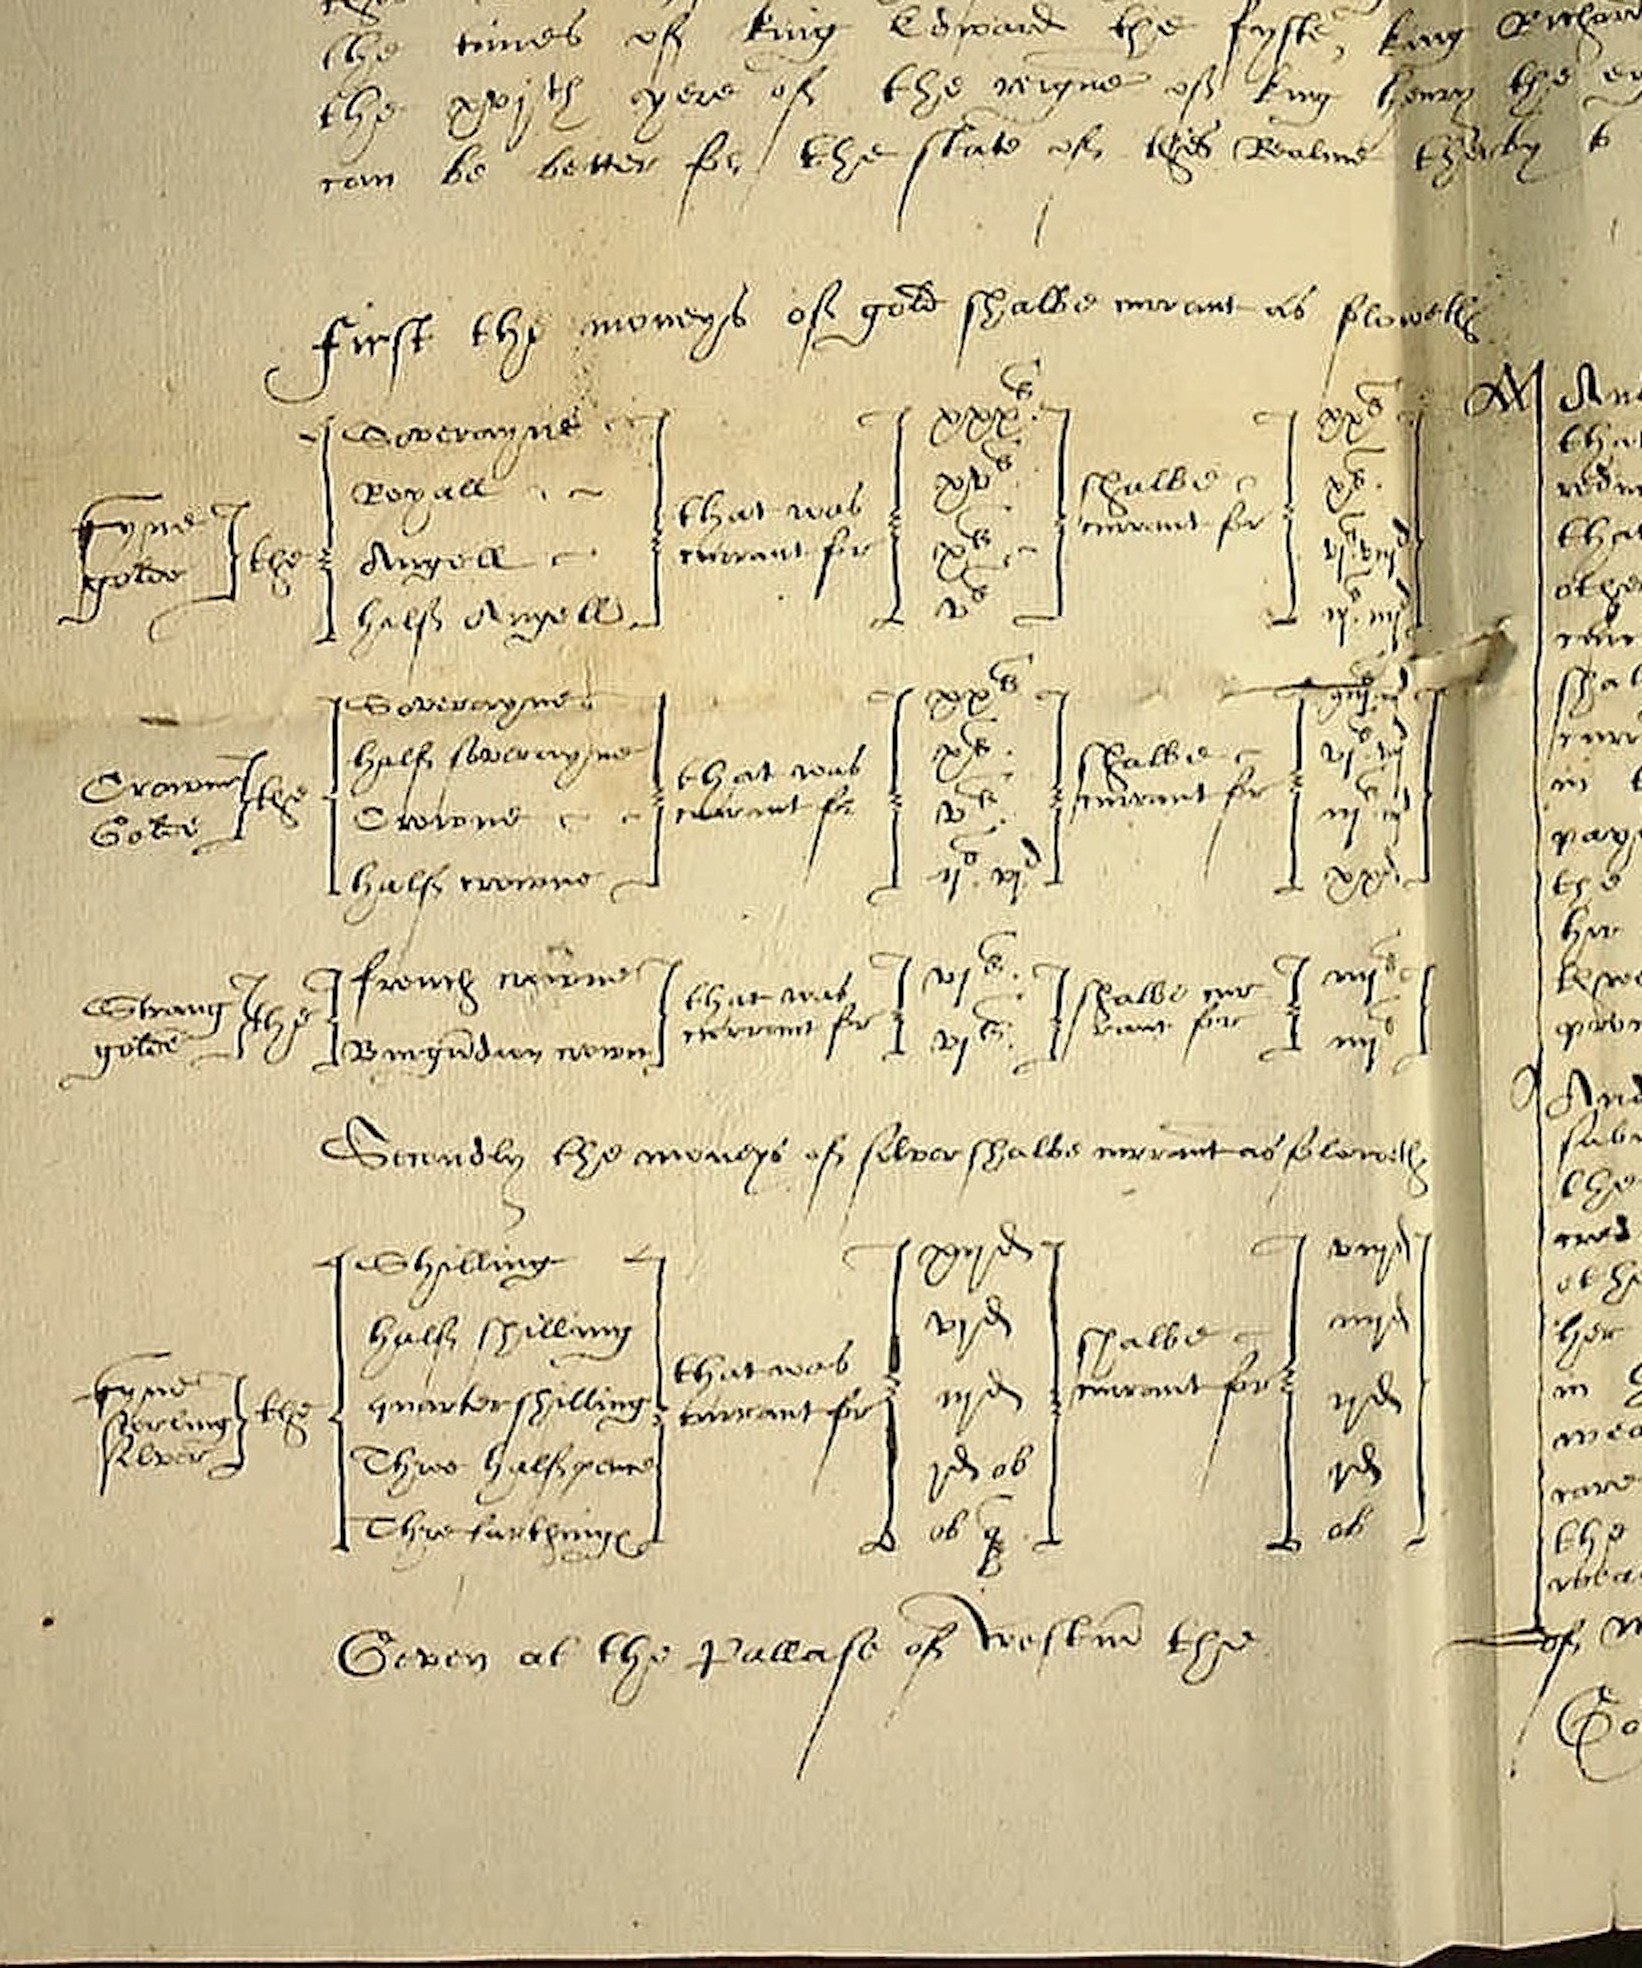 the tymes of king Edward the fyfte, king Richard
the xvjth yere of the reigne of king henry the
can be better for the state of this Realme therby to
First the moneys of gold shalbe currant as foloweth
Fyne golde the
Soverayne that was currant for xxxs shalbe currant for xxs
Royall xvs xs
Angell xs vjs viijd
half Angell vs iijs iiijd
Crowne Golde the
Soverayne that was currant for xxs shalbe currant for xiijs iiijd
half soverayne xs vjs viijd
Crowne vs iijs iiijd
half crowne ijs vjd xxd
Strang golde the
french crowne that was currant for vjs shalbe currant for iiijs
Burgundian crown vjs iiijs
Secondly the moneys of silver shalbe currant as foloweth
Fyne sterling silver the
Shilling that was currant for xijd shalbe currant for viijd
half shilling vjd iiijd
quarter shilling iijd ijd
Three halfpence jd ob jd
Thre farthinges ob q ob
Geven at the Pallase of Westm the
And
that
that
othe
shal
curr
in
the
her
And
the
her
in
the
of